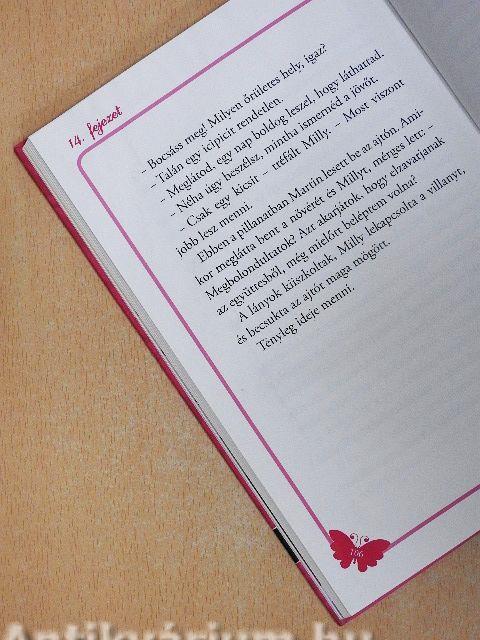 14. fejezet
– Bocsáss meg! Milyen őrületes hely, igaz?
– Talán egy icipicit rendetlen.
– Meglátod, egy nap boldog leszel, hogy láthattad.
– Néha úgy beszélsz, mintha ismernéd a jövőt.
– Csak egy kicsit – tréfált Milly. – Most viszont
jobb lesz menni.
Ebben a pillanatban Martin lesett be az ajtón. Ami-
kor meglátta bent a nővérét és Millyt, mérges lett: –
Megbolondultatok? Azt akarjátok, hogy elzavarjanak
az együttesből, még mielőtt beléptem volna?
A lányok kiiszkoltak, Milly lekapcsolta a villanyt,
és becsukta az ajtót maga mögött.
Tényleg ideje menni.
106
Antikvárium.hu